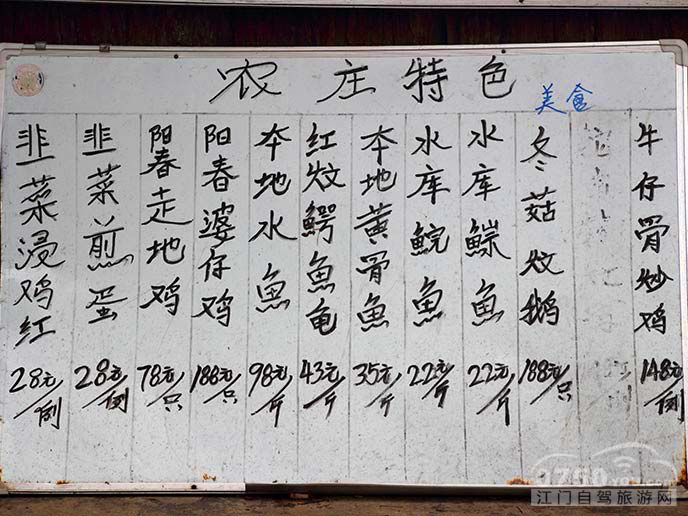 农庄特色
美食
韭菜浸鸡红 28元/例
韭菜煎蛋 28元/例
阳春走地鸡 78元/只
阳春婆仔鸡 188元/只
本地水魚 98元/斤
红炆鳄魚龟 43元/斤
本地黄骨魚 35元/斤
水库鲩魚 22元/斤
水库鯮魚 22元/斤
冬菇炆鹅 188元/只
牛仔骨炒鸡 148元/例
江门自驾旅游网